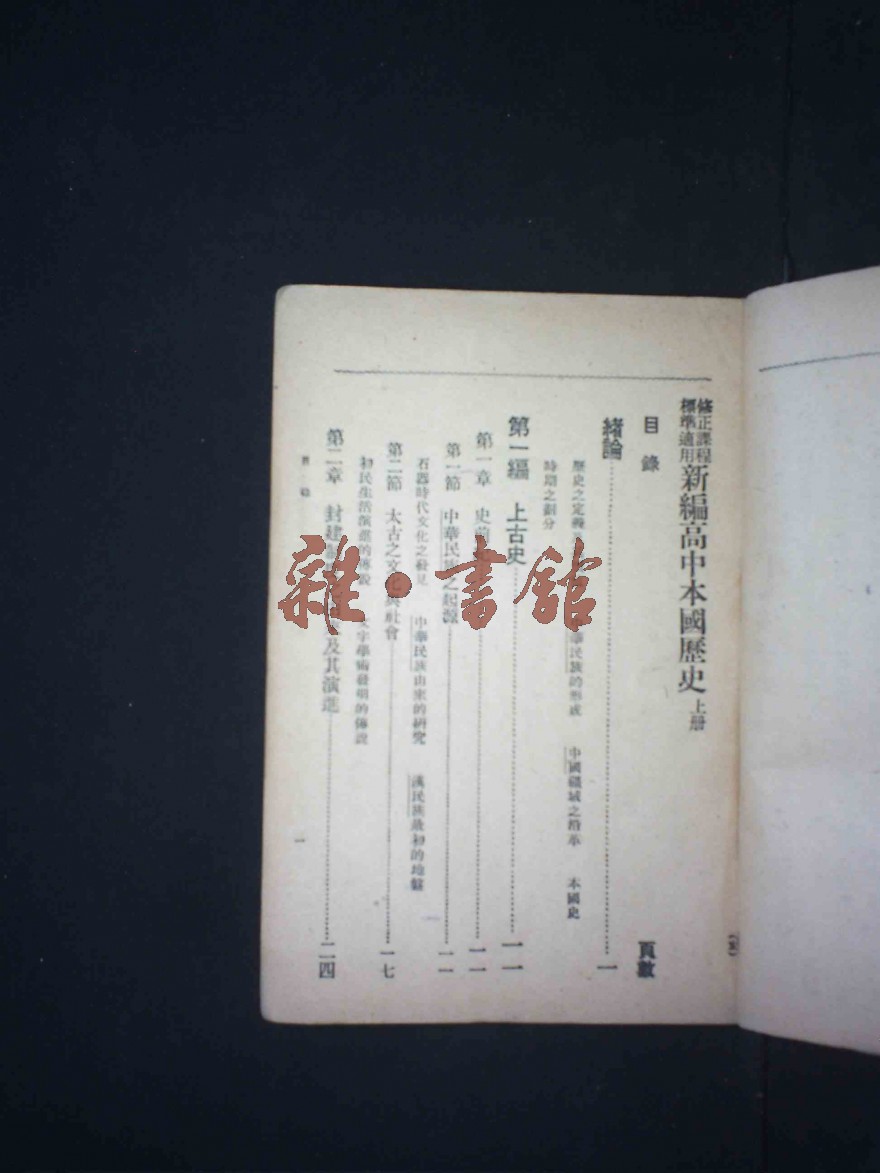 修正課程
標準適用
新編高中本國歷史 上册
目錄
頁數
緒論 一
歷史之定義 華民族的形成 中國疆域之沿革 本國史
時期之劃分
第一編 上古史 一一
第一章 史前 一一
第一節 中華民族之起源 一一
石器時代文化之發見 中華民族由來的研究 漢民族最初的地盤
第二節 太古之文化與社會 一七
初民生活演進的傳說 文字學術發明的傳說
第二章 封建 及其演進 二四
目錄
一
雜·書館